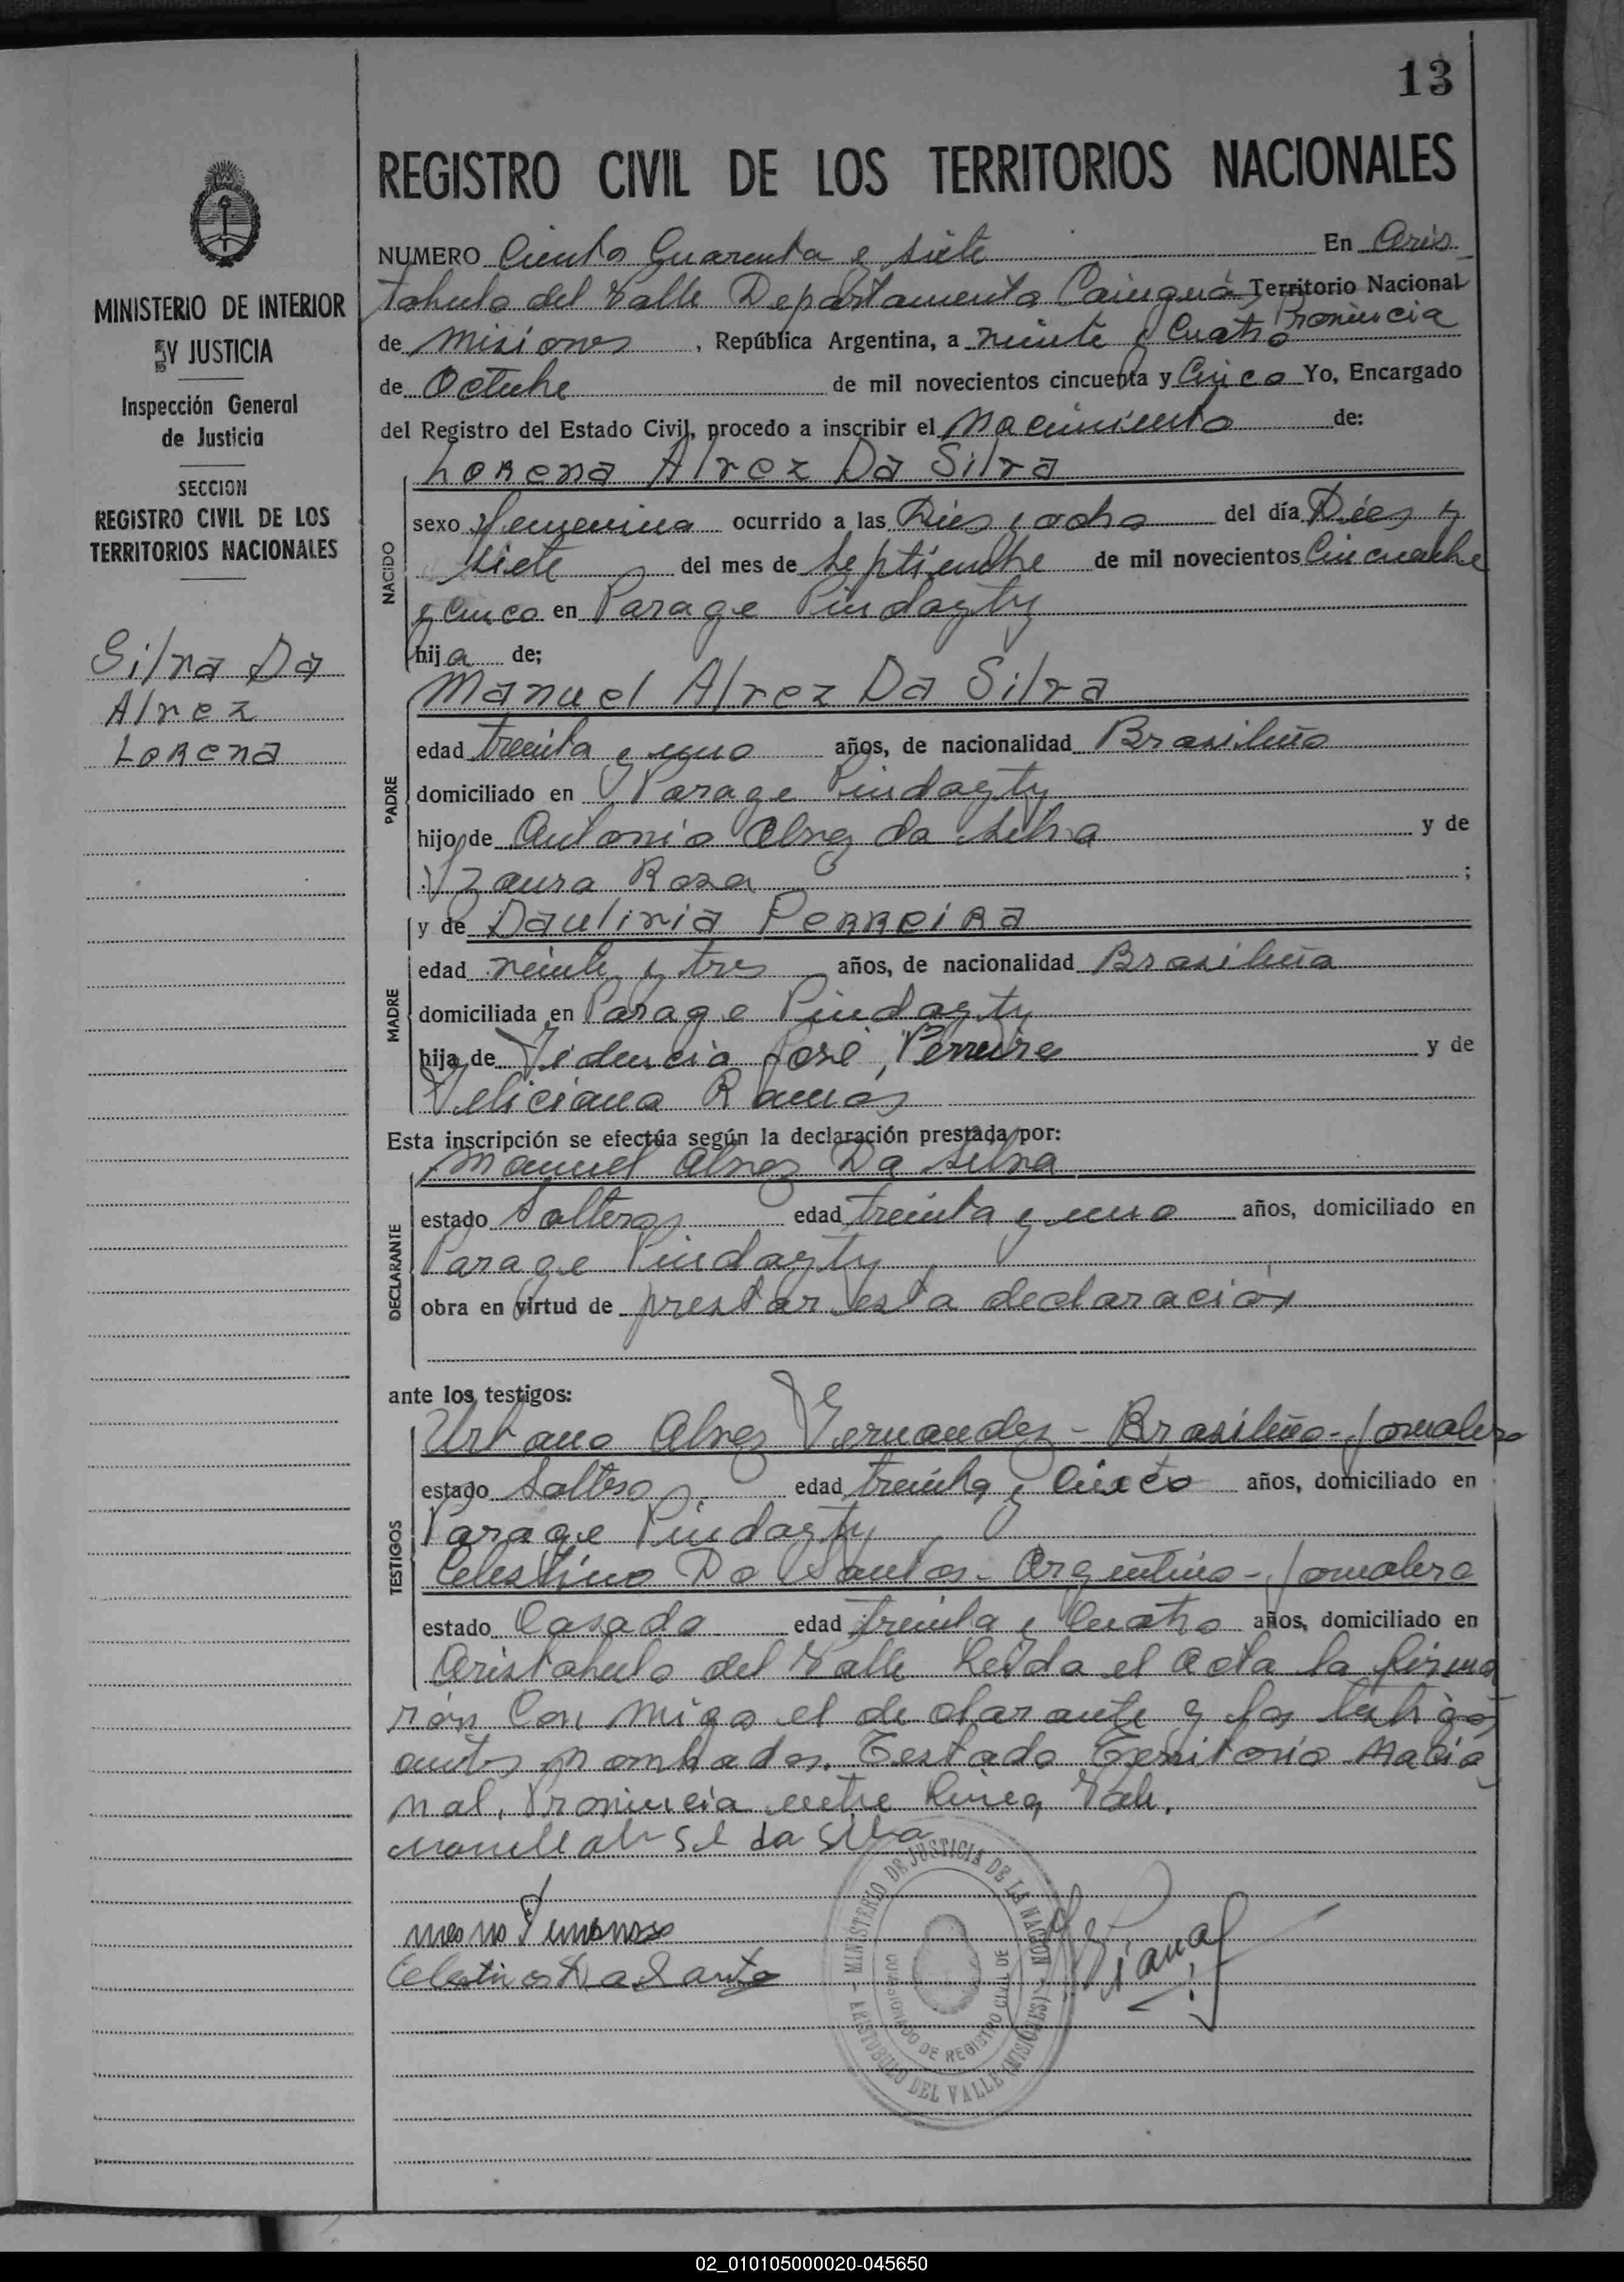 13
REGISTRO CIVIL DE LOS TERRITORIOS NACIONALES
MINISTERIO DE INTERIOR
Y JUSTICIA
Inspección General
de Justicia
SECCION
REGISTRO CIVIL DE LOS
TERRITORIOS NACIONALES
Silva Da
Alvez
Lorena
NUMERO Ciento Cuarenta y siete En Aris
tobulo del Valle Departamento Cainguá Territorio Nacional
Provincia
de Misiones , República Argentina, a veinte y Cuatro
de Octubre de mil novecientos cincuenta y Cinco Yo, Encargado
del Registro del Estado Civil, procedo a inscribir el Nacimiento de:
Lorena Alvez Da Silva
NACIDO
sexo Femenina ocurrido a las Dies y ocho del día Dies y
siete del mes de Septiembre de mil novecientos Cincuenta
y Cinco en Parage Pindayty
hija de;
Manuel Alvez Da Silva
PADRE
edad treinta y uno años, de nacionalidad Brasileño
domiciliado en Parage Pindayty
hijo de Antonio Alvez da Silva y de
Izaura Rosa ;
y de Daulinia Perreira
MADRE
edad veinte y tres años, de nacionalidad Brasileña
domiciliada en Parage Pindayty
hija de Fidencio José Perreira y de
Feliciana Ramos
Esta inscripción se efectúa según la declaración prestada por:
Manuel Alvez Da Silva
DECLARANTE
estado Soltero edad treinta y uno años, domiciliado en
Parage Pindayty
obra en virtud de prestar esta declaración
ante los testigos:
TESTIGOS
Urbano Alvez Fernandez - Brasileño - Jornalero
estado Soltero edad treinta y Cinco años, domiciliado en
Parage Pindayty
Celestino Do Santos - Argentino - Jornalero
estado Casado edad treinta y Cuatro años, domiciliado en
Aristobulo del Valle Leida el Acta la firma
rón Con migo el declarante y los testigos
antes nombrados. Testado Territorio Nacio
nal, Provincia entre linea Vale.
da Silva
MINISTERIO DE JUSTICIA DE LA NACION
ARISTOBULO DEL VALLE (MISIONES)
DE REGISTRO CIVIL DE
02_010105000020-045650